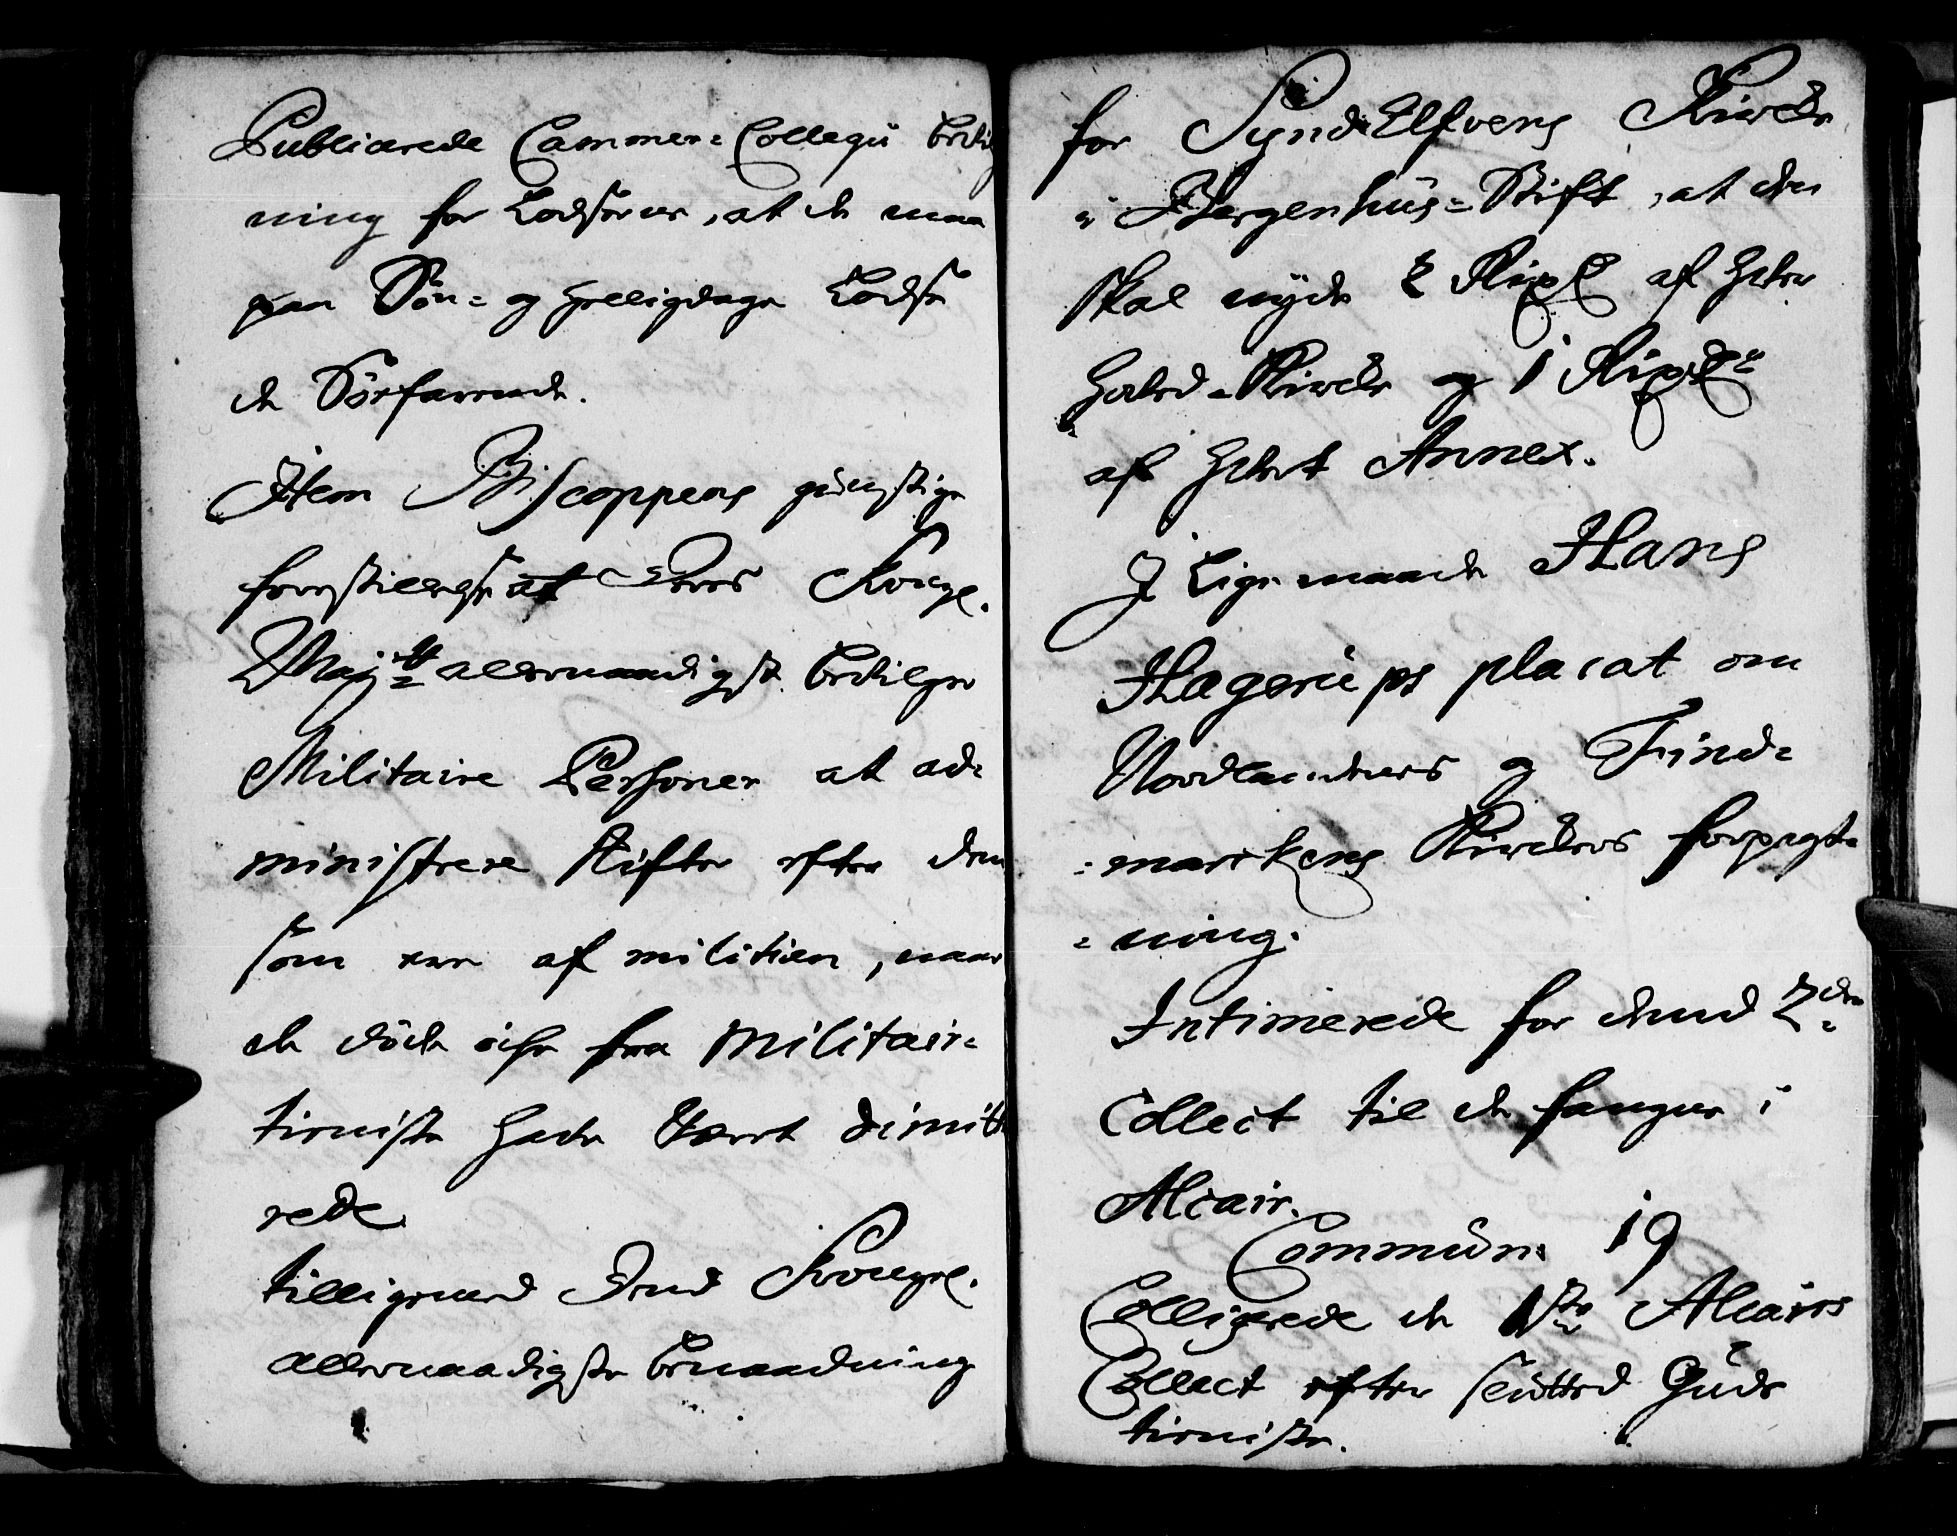 Publicerede Cammer-Collegii bevil
ning for Lodserne, at de maa
paa Søn- og Helligdage Lodse
de Søefarende.
Item Biscoppens gunstige
forestillelse at Vores Kongl.
Maj.tt allernaadigst bevilger
Militaire Personer at ad-
ministrere Skifter efter dem
som ere af militien, naar
de døde icke fra Militair-
tieniste hade været dimitt
rede
tilligemed Dend Kongel.
allernaadigste benaadning
for SyndElfvens Kircke
i Bergenhus-Stift, at den
skal nyde 2 Rixd af hver
Hoved-Kircke og 1 Rixd.
af hvert Annex.
I Lige maade Hans
Hagerups placat om
Nordlandenes og Find-
-marckens Kirckers forpagt-
-ning.
Intimerede for dend 2den
Collect til de fanger i
Alcair.
Commun. 19
Colligerede de 1ste Alcairs
Collect efter slutted Guds
tieniste.